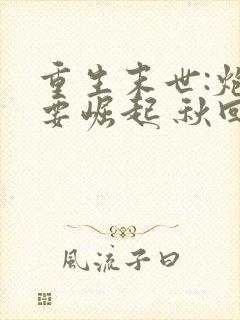 重生末世:炮
要崛起 秋回
風流子曰